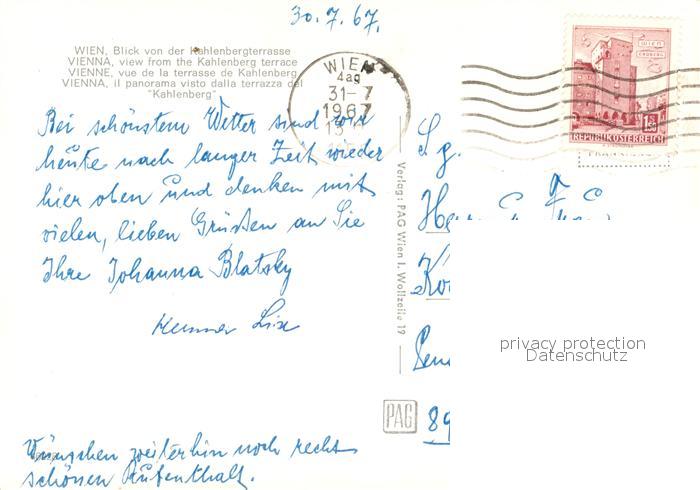 30.7.67.
WIEN, Blick von der Kahlenbergterrasse
VIENNA, view from the Kahlenberg terrace
VIENNE, vue de la terrasse de Kahlenberg
VIENNA, il panorama visto dalla terrazza del
"Kahlenberg"
WIEN
4ag
31-7
1967
WIEN
ERDBERG
1S50
REPUBLIK ÖSTERREICH
Bei schönstem Wetter sind wir
heute nach langer Zeit wieder
hier oben und denken mit
vielen, lieben Grüßen an Sie
Ihre Johanna Blatsky
Verlag: PAG Wien I. Wollzeile 19
PAG
Sg.
89
privacy protection
Datenschutz
Wünschen weiterhin noch recht
schönen Aufenthalt.